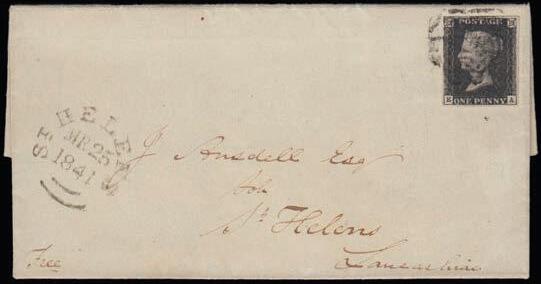 POSTAGE
ONE PENNY
ST HELENS
MR 25
1841
J Ansdell Esq
St Helens
Lancashire
Free